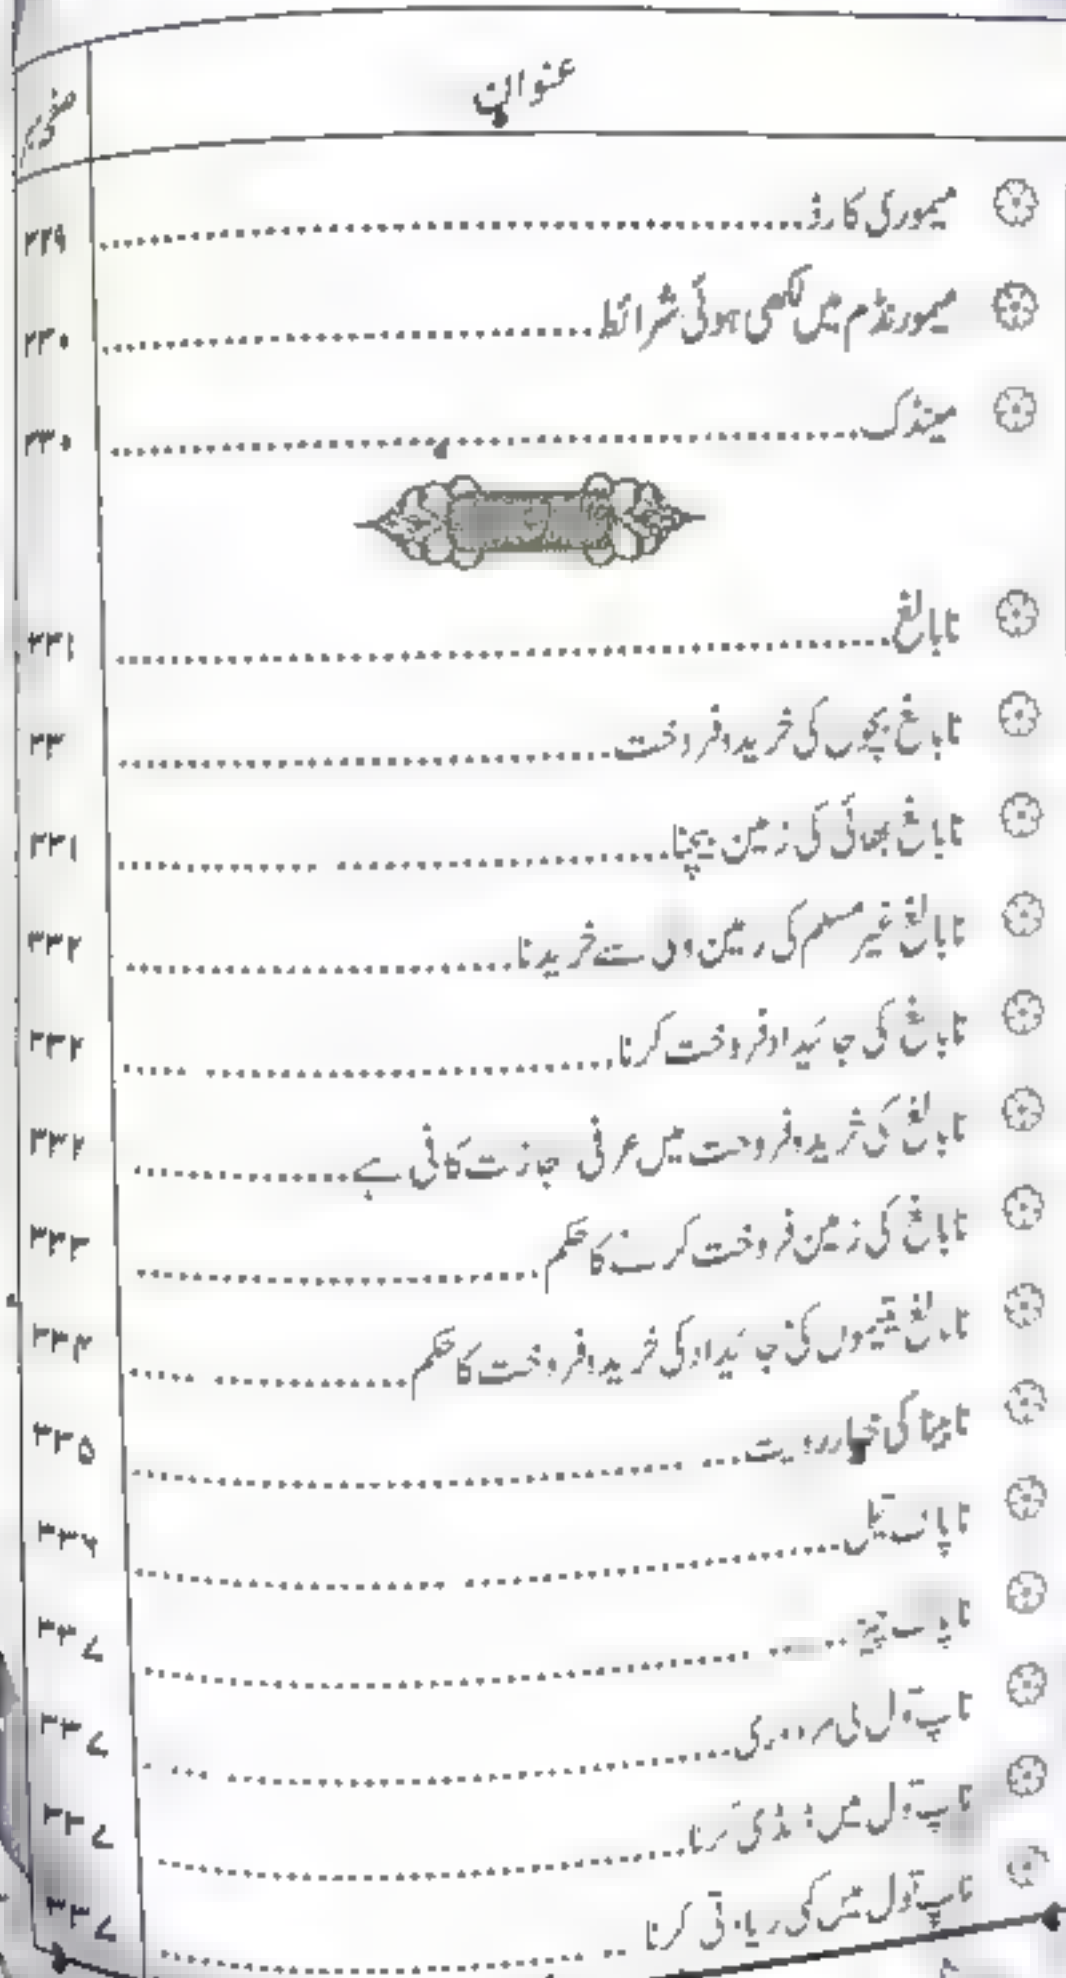 عنوان
میموری کارڈ ۲۲۹
میمورنڈم میں لکھی ہوئی شرائط ۲۳۰
مینڈک ۲۳۰
نابالغ ۲۳۱
نابالغ بچوں کی خرید و فروخت
نابالغ بھائی کی زمین بیچنا ۲۳۱
نابالغ غیر مسلم کی زمین ولی سے خریدنا ۲۳۲
نابالغ کی جائیداد فروخت کرنا ۲۳۲
نابالغ کی خرید و فروخت میں عرفی اجازت کافی ہے ۲۳۲
نابالغ کی زمین فروخت کرنے کا حکم ۲۳۳
نابالغ یتیموں کی جائیداد کی خرید و فروخت کا حکم ۲۳۴
نابینا کی خیار رویت ۲۳۵
ناپاک تیل ۲۳۶
ناپاک چیز ۲۳۷
ناپ تول کی مزدوری ۲۳۷
ناپ تول میں ڈنڈی مارنا ۲۳۷
ناپ تول میں کمی زیادتی کرنا ۲۳۷